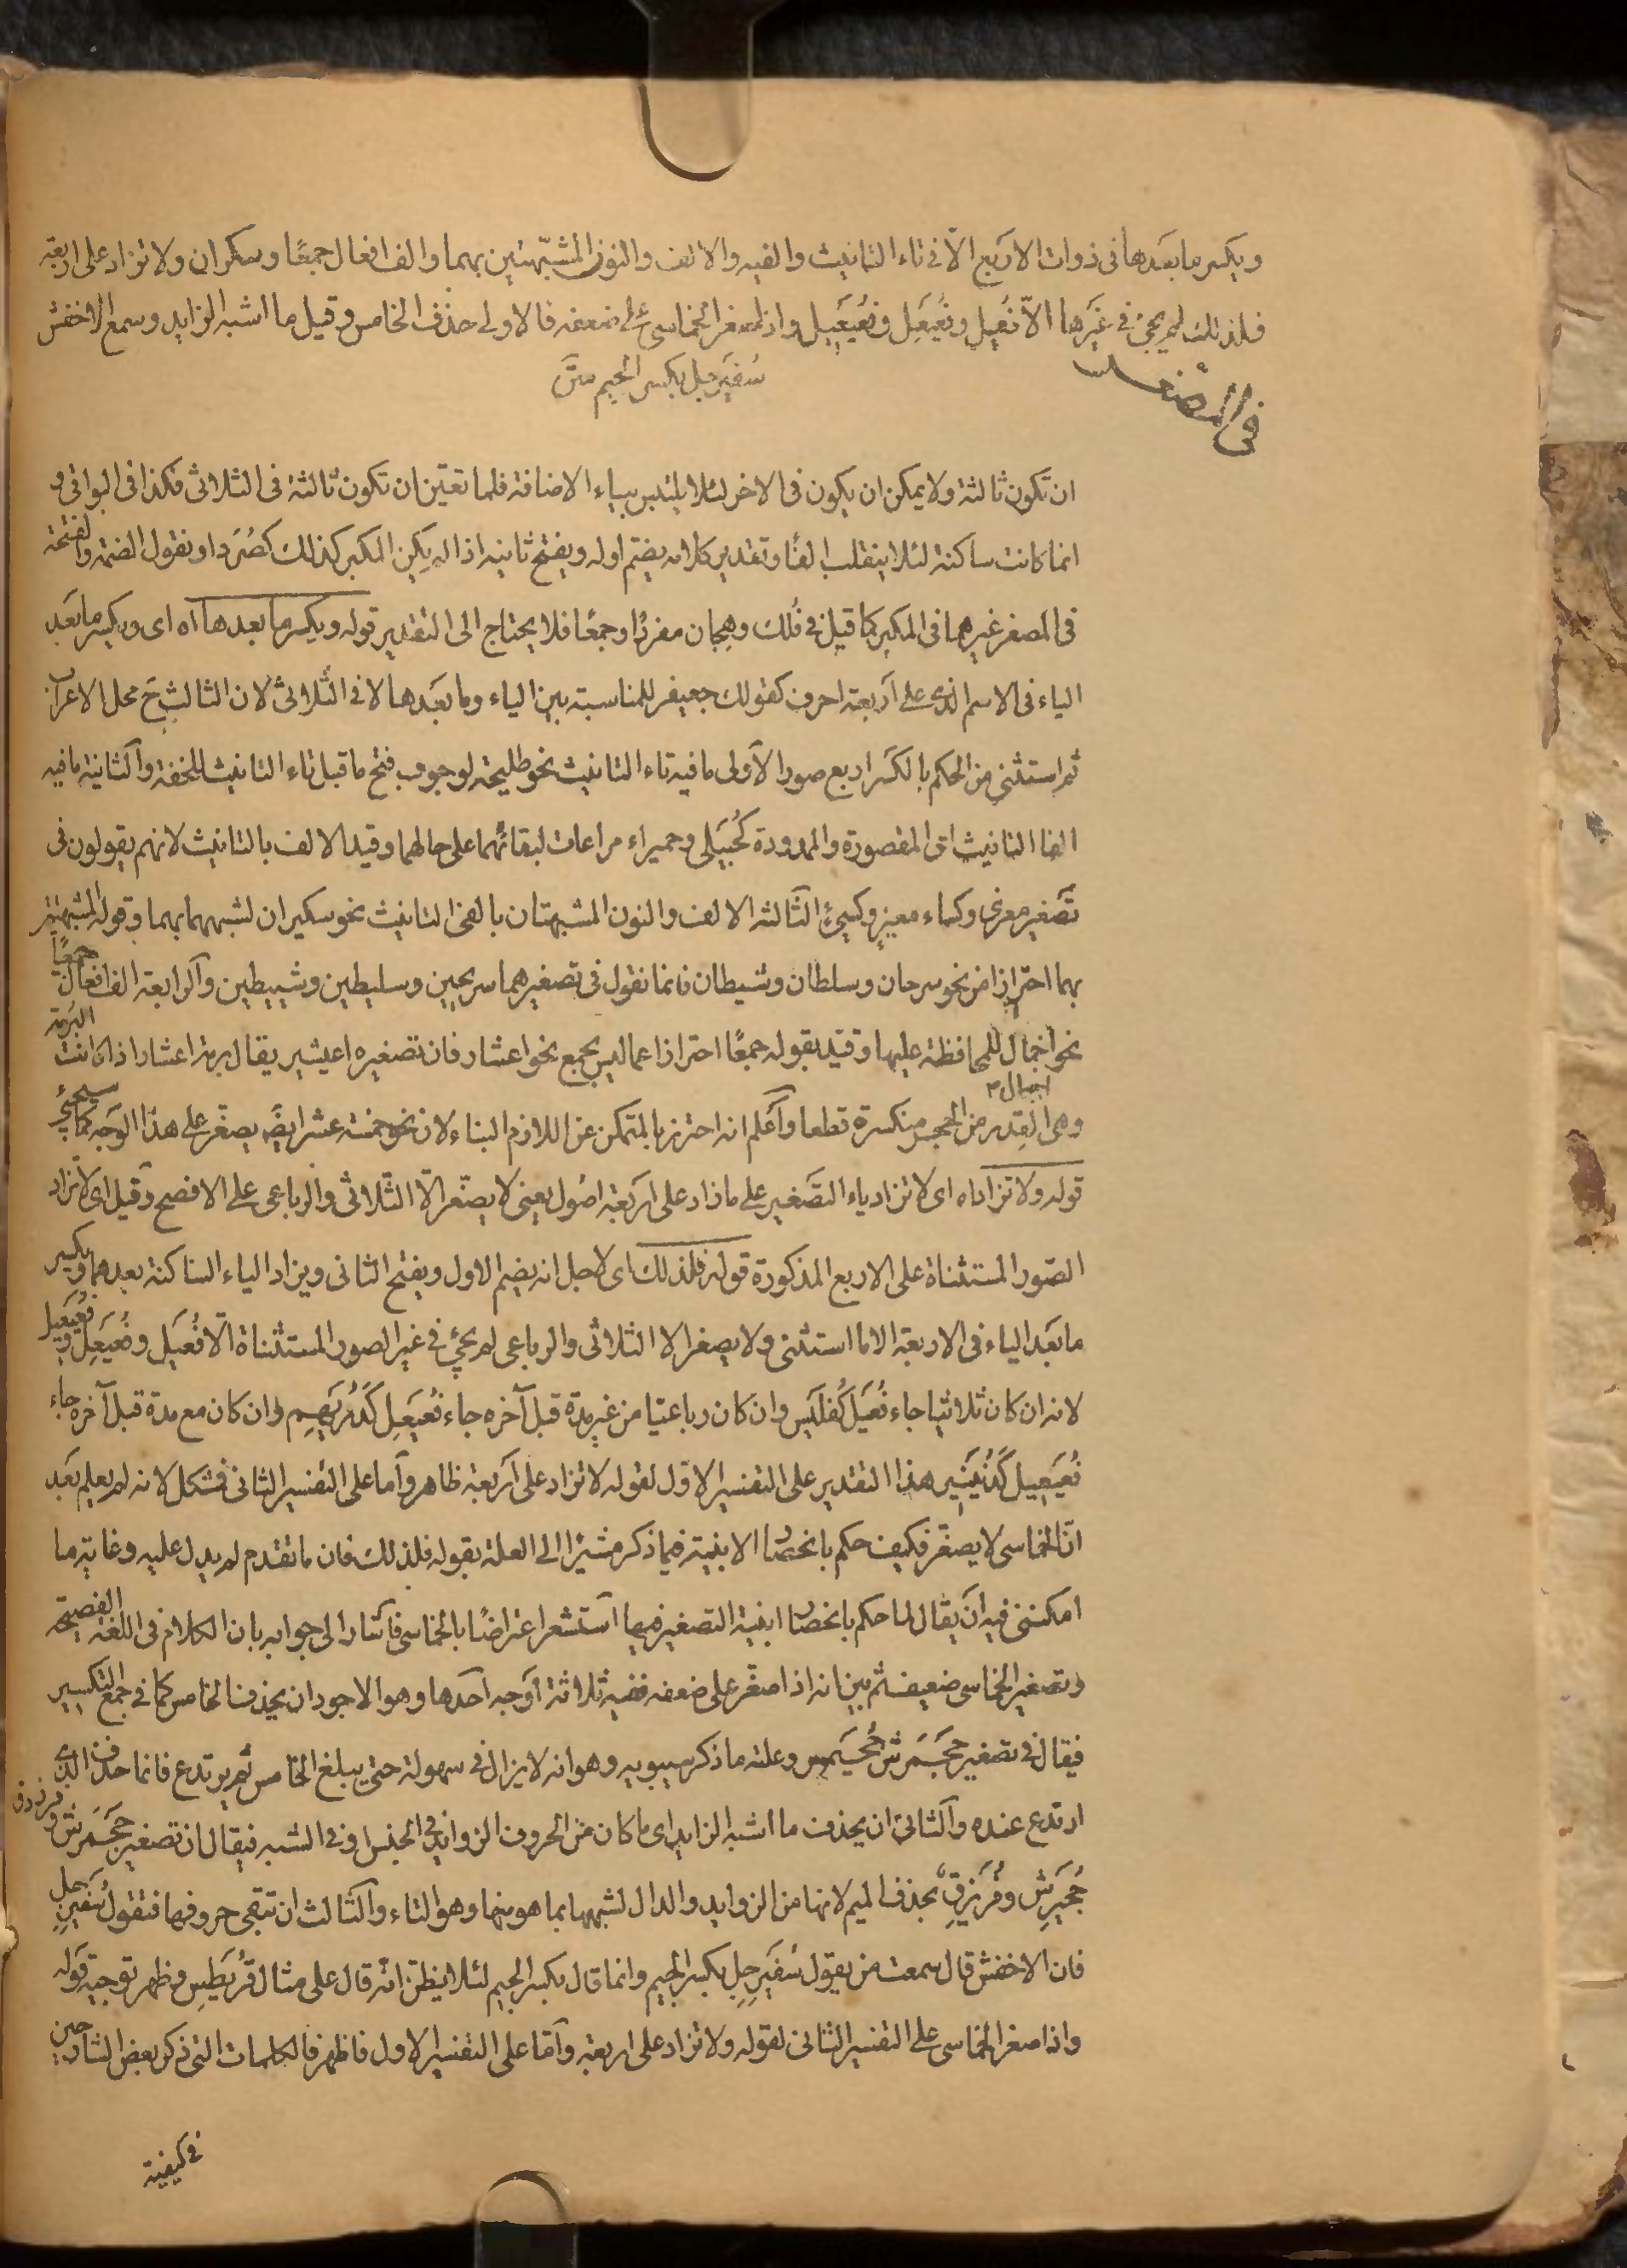 ويكسر ما بعدها فى ذوات الاربع الّا فى تاء التانيث والفيه والالف والنون المشبّهتين بهما والف افعال جمعًا وسكران ولا تزاد على اربعة
فلذلك لم يجئ فى غيرها الّا فُعيل وفُعَيعِل وفُعَيعِيل واذا صغر الخماسى على ضعفه فالاولى حذف الخامس وقيل ما اشبه الزايد وسمع الاخفش
سُفَيرجِل بكسر الجيم
فى المصغر
ان تكون ثالثة ولا يمكن ان يكون فى الاخر لئلا يلتبس بياء الاضافة فلما تعيّن ان تكون ثالثة فى الثلاثى فكذا فى البواقى و
انما كانت ساكنة لئلا ينقلب الفًا وتقدير كلامه يضمّ اوله ويفتح ثانيه اذا لم يكن المكبر كذلك كصُرَد او نقول الضمة والفتحة
فى المصغر غيرهما فى المكبر كما قيل فى فُلك وهِجان مفردًا وجمعًا فلا يحتاج الى التقدير قوله ويكسر ما بعدها اه اى ويكسر ما بعد
الياء فى الاسم الذى على اربعة احرف كقولك جعيفر للمناسبة بين الياء وما بعدها لا فى الثلاثى لان الثالث ح محل الاعراب
ثم استثنى من الحكم بالكسر اربع صور الاولى ما فيه تاء التانيث نحو طليحة لوجوب فتح ما قبل تاء التانيث للخفة والثانية ما فيه
الفا التانيث اى المقصورة والممدودة كحُبَيلى وحميراء مراعات لبقائهما على حالهما وقيد الالف بالتانيث لانهم يقولون فى
تصغير معزى وكساء معيز وكسيئ الثالثة الالف والنون المشبهتان بالفى التانيث نحو سكيران لشبههما بهما وقوله المشبهتين
بهما احتراز من نحو سرحان وسلطان وشيطان فانما نقول فى تصغيرهما سريحين وسليطين وشييطين والرابعة الف افعال جمعًا
نحو اجمال اجيمال للمحافظة عليها وقيد بقوله جمعًا احترازا عما ليس بجمع نحو اعشار فان تصغيره اعيشير يقال برمة اعشار اذا كانت البرمة
وهى القدر من الحجر منكسرة قطعا واعلم انه احترز بالمتمكن عن اللازم البناء لان نحو خمسة عشر ايضًا يصغّر على هذا الوجه كما سيجئ
قوله ولا تزاد اه اى لا تزاد ياء التصغير على ما زاد على اربعة اصول يعنى لا يصغّر الّا الثلاثى والرباعى على الافصح وقيل اى لا تزاد
الصور المستثناة على الاربع المذكورة قوله فلذلك اى لاجل انه يضم الاول ويفتح الثانى ويزاد الياء الساكنة بعدهما ويكسر
ما بعد الياء فى الاربعة الا ما استثنى ولا يصغر الا الثلاثى والرباعى لم يجئ فى غير الصور المستثناة الّا فُعَيل وفُعَيعِل وفُعَيعِيل
لانه ان كان ثلاثيا جاء فُعَيل كفُلَيس وان كان رباعيّا من غير مدة قبل آخره جاء فُعَيعِل كدُرَيهِم وان كان مع مدة قبل آخره جاء
فُعَيعِيل كدُنَينير هذا التقدير على التفسير الاول لقوله لا تزاد على اربعة ظاهر واما على التفسير الثانى فمشكل لانه لم يعلم بعد
انّ الخماسى لا يصغّر فكيف حكم بانحصار الابنية فيما ذكر مشيرًا الى العلة بقوله فلذلك فان ما تقدم لم يدل عليه وغاية ما
امكننى فيه ان يقال لما حكم بانحصار ابنية التصغير فيها استشعر اعتراضًا بالخماسى فاشار الى جوابه بان الكلام فى اللغة الفصيحة
وتصغير الخماسى ضعيف ثم بين انه اذا صغّر على ضعفه ففيه ثلاثة اوجه احدها وهو الاجود ان يحذف الخامس كما فى جمع التكسير
فيقال فى تصغير جحمرش جُحَيمر وعلته ما ذكر سيبويه وهو انه لا يزال فى سهولة حتى يبلغ الخامس ثم يرتدع فانما حذف الذى
ارتدع عنده والثانى ان يحذف ما اشبه الزايد اى ما كان من الحروف الزوايد فى الجنس او فى الشبه فيقال ان تصغير جحمرش وفرزدق
جُحَيرِش وفُرَيزِق بحذف الميم لانها من الزوايد والدال لشبهها بما هو منها وهو التاء والثالث ان تبقى حروفها فتقول سُفَيرجل
فان الاخفش قال سمعت من يقول سُفَيرجِل بكسر الجيم وانما قال بكسر الجيم لئلا يظنّ انه قال على مثال قُرَيطِس وظهر توجيه قوله
واذا صغر الخماسى على التفسير الثانى لقوله ولا تزاد على اربعة وامّا على التفسير الاول فاظهر فالكلمات التى ذكر بعض الشارحين
فى كيفية